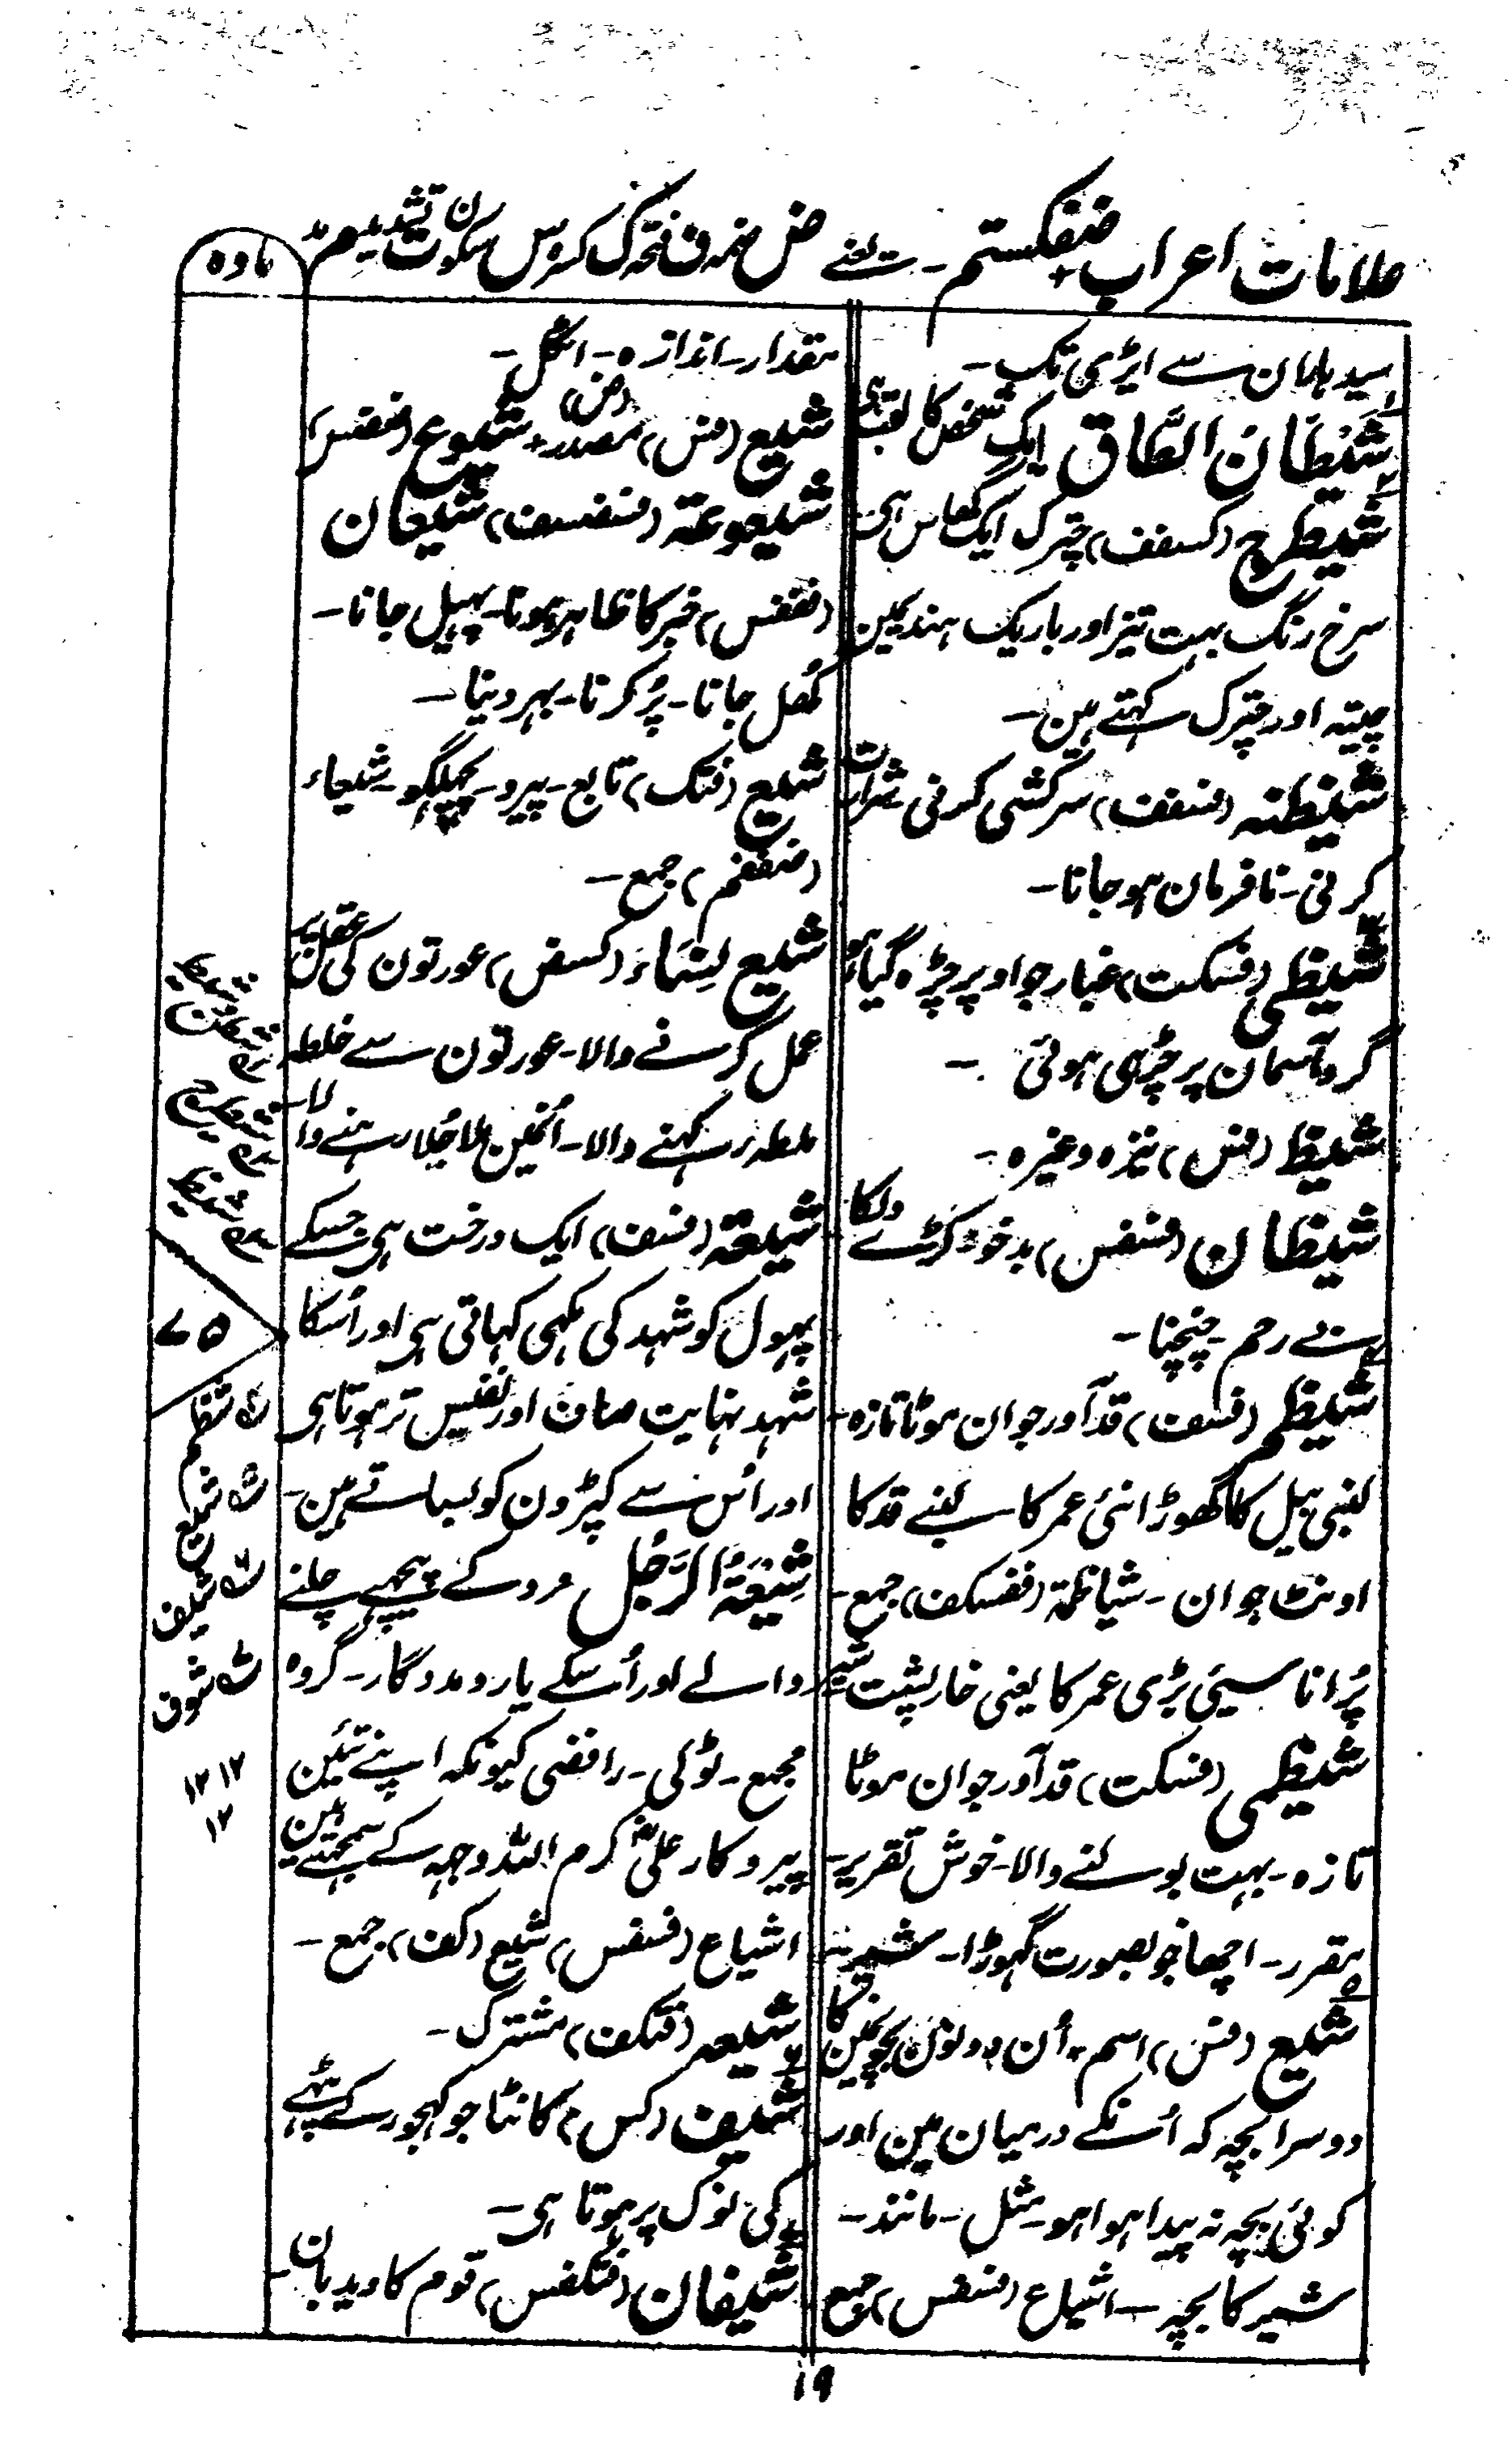 علامات اعراب ضفکستم - یعنے ض ضمہ ف فتحہ ک کسرہ س سکون ت تشدید م مد
مادہ
سید ہامان سے ایڑی تک -
شَیْطَانُ الطَّاق ایک شخص کا لقب ہی
شیطرج (کسفف) چترک ایک گھاس ہی
سرخ رنگ بہت تیز اور باریک ہند میں
چیتہ اور چترک کہتے ہین -
شیطنہ (فسفف) سرکشی کرنی شرارت
کرنی - نافرمان ہوجانا -
شیظی (فسکت) غبار جو اوپر چڑہ گیا ہو
گرد آسمان پر چڑہی ہوئی -
شیظ (فس) نیزہ وغیرہ -
شیظان (فسفس) بدخو - کڑے دلکا
بے رحم -
شیظم (فسف) قدآور جوان موٹا تازہ -
لنبی بیل کا گھوڑا نئی عمر کا - لنبے قد کا
اونٹ جوان - شیاظمۃ (ففسکف) جمع -
پُرانا سیئی بڑی عمر کا یعنی خارپشت شیر
شیظمی (فسکت) قدآور جوان موٹا
تازہ - بہت بولنے والا - خوش تقریر -
مقرر - اچھا خوبصورت گہوڑا - شیر نر
شیع (فس) اسم + اُن دونون بچون مین کا
دوسرا بچہ کہ اُنکے درمیان مین اور
کوئی بچہ نہ پیدا ہوا ہو - مثل - مانند -
شیر کا بچہ - اشیاع (فسفس) جمع
مقدار - اندازہ - اٹکل -
شیع (فس) مصدر + شیوع (ضضس) (ض)
شیعوعۃ (فسضسف) شیعان
(فففس) خبر کا ظاہر ہونا - پہیل جانا -
کُھل جانا - پُر کرنا - بہر دینا -
شیع (فتک) تابع - پیرو - پچھلگو - شیعاء
(ضففم) جمع -
شیع نِسَاء (کسفس) عورتون کی عقل پر
عمل کرنے والا - عورتون سے خلطہ
ملطہ رکہنے والا - اُنمین ملا جُلا رہنے والا
شیعۃ (فسف) ایک درخت ہی جسکے
پہول کو شہد کی مکہی کہاتی ہی اور اُسکا
شہد نہایت صاف اور نفیس تر ہوتا ہی
اور اُس سے کپڑون کو بساتے ہین -
شِیْعَۃُ الرَّجُل مرد کے پیچہے چلنے
والے اور اُسکے یار و مددگار - گروہ
مجمع - ٹولی - رافضی کیونکہ اپنے تئین
پیروکار علیؓ کرم اللہ وجہہ کے سمجہتے ہین
اشیاع (فسفس) شیع (کف) جمع -
شیعہ (فتکف) مشترک -
شیف (کس) کانٹا جو کہجور کے پٹہے
کی نوک پر ہوتا ہی -
شیفان (فتکفس) قوم کا دیدبان -
۷۵
شظم
شیع
شیف
شوف
۱۲ ۱۲
۱۲
۱۹